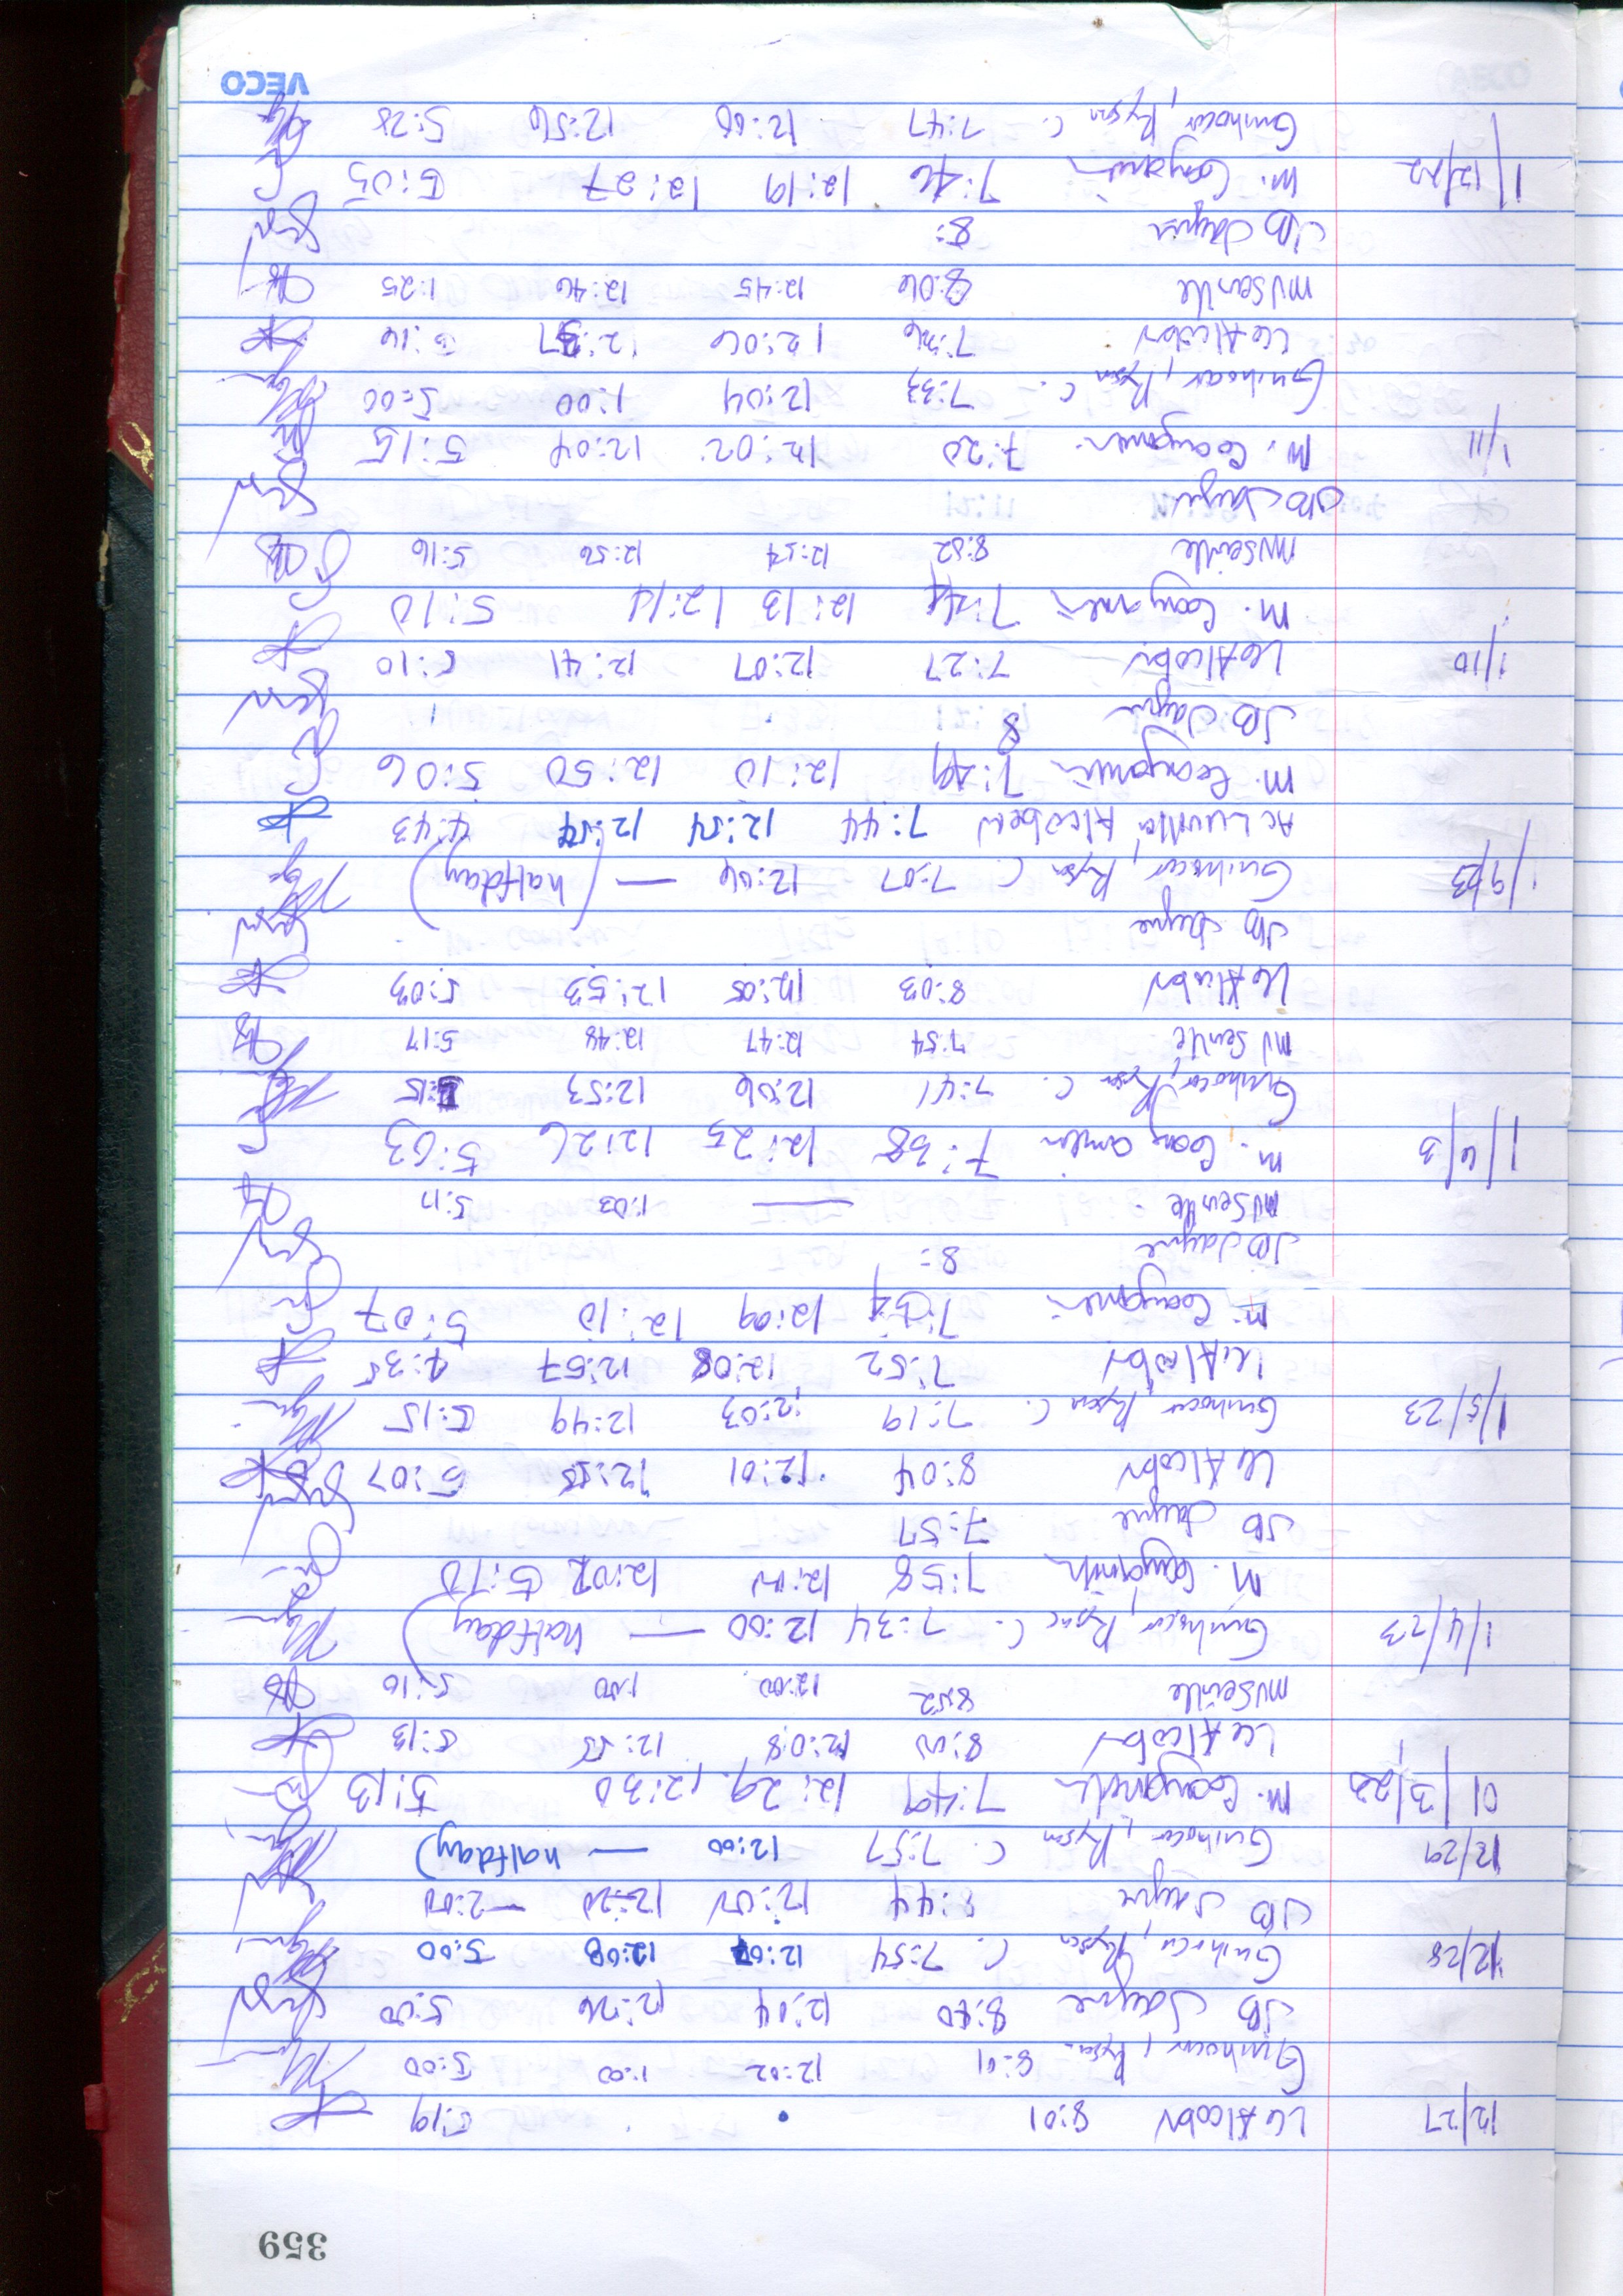 359
12/27 LC Alcobv 8:01 5:19
Guihocor, Rysa. 8:01 12:02 1:00 5:00
JB Jayne 8:40 12:14 12:26 5:00
12/28 Guihocor, Rysa C. 7:54 12:07 12:08 5:00
JB Jayne 8:44 12:00 12:20 - 2:00
12/29 Guihocor, Rysa C. 7:57 12:00 — halfday)
01/3/23 M. 7:49 12:29 12:30 5:13
LC Alcobv 8:00 12:08 12:55 5:13
MV Seville 8:52 12:00 1:00 5:16
1/4/23 Guihocor, Rysa C. 7:34 12:00 — halfday)
M. 7:58 12:01 12:02 5:10
JB Jayne 7:57
LC Alcobv 8:04 12:01 12:55 5:07
1/5/23 Guihocor Rysa C. 7:19 12:03 12:49 5:15
LC Alcobv 7:52 12:08 12:57 4:35
M. 7:34 12:09 12:10 5:07
JB Jayne 8:
MV Seville — 1:03 5:17
1/6/3 M. 7:38 12:25 12:26 5:03
Guihocor, Rysa C. 7:41 12:06 12:53 5:15
MV Seville 7:54 12:47 12:48 5:17
LC Alcobv 8:03 12:05 12:53 5:03
JB Jayne
1/9/23 Guihocor, Rysa C. 7:07 12:06 — (halfday)
AC Alcobev 7:44 12:54 12:54 4:43
M. 7:49 12:10 12:50 5:06
JB Jayne 8
1/10 LC Alcobv 7:27 12:07 12:41 5:10
M. 7:44 12:13 12:14 5:10
MV Seville 8:52 12:54 12:56 5:16
JB Jayne
1/11 M. 7:20 12:02 12:04 5:15
Guihocor, Rysa C. 7:33 12:04 1:00 5:00
LC Alcobv 7:26 12:06 12:37 5:16
MV Seville 8:06 12:45 12:46 1:25
JB Jayne 8:
1/12/22 M. 7:46 12:19 12:27 5:05
Guihocor, Rysa C. 7:47 12:00 12:56 5:28
VECO